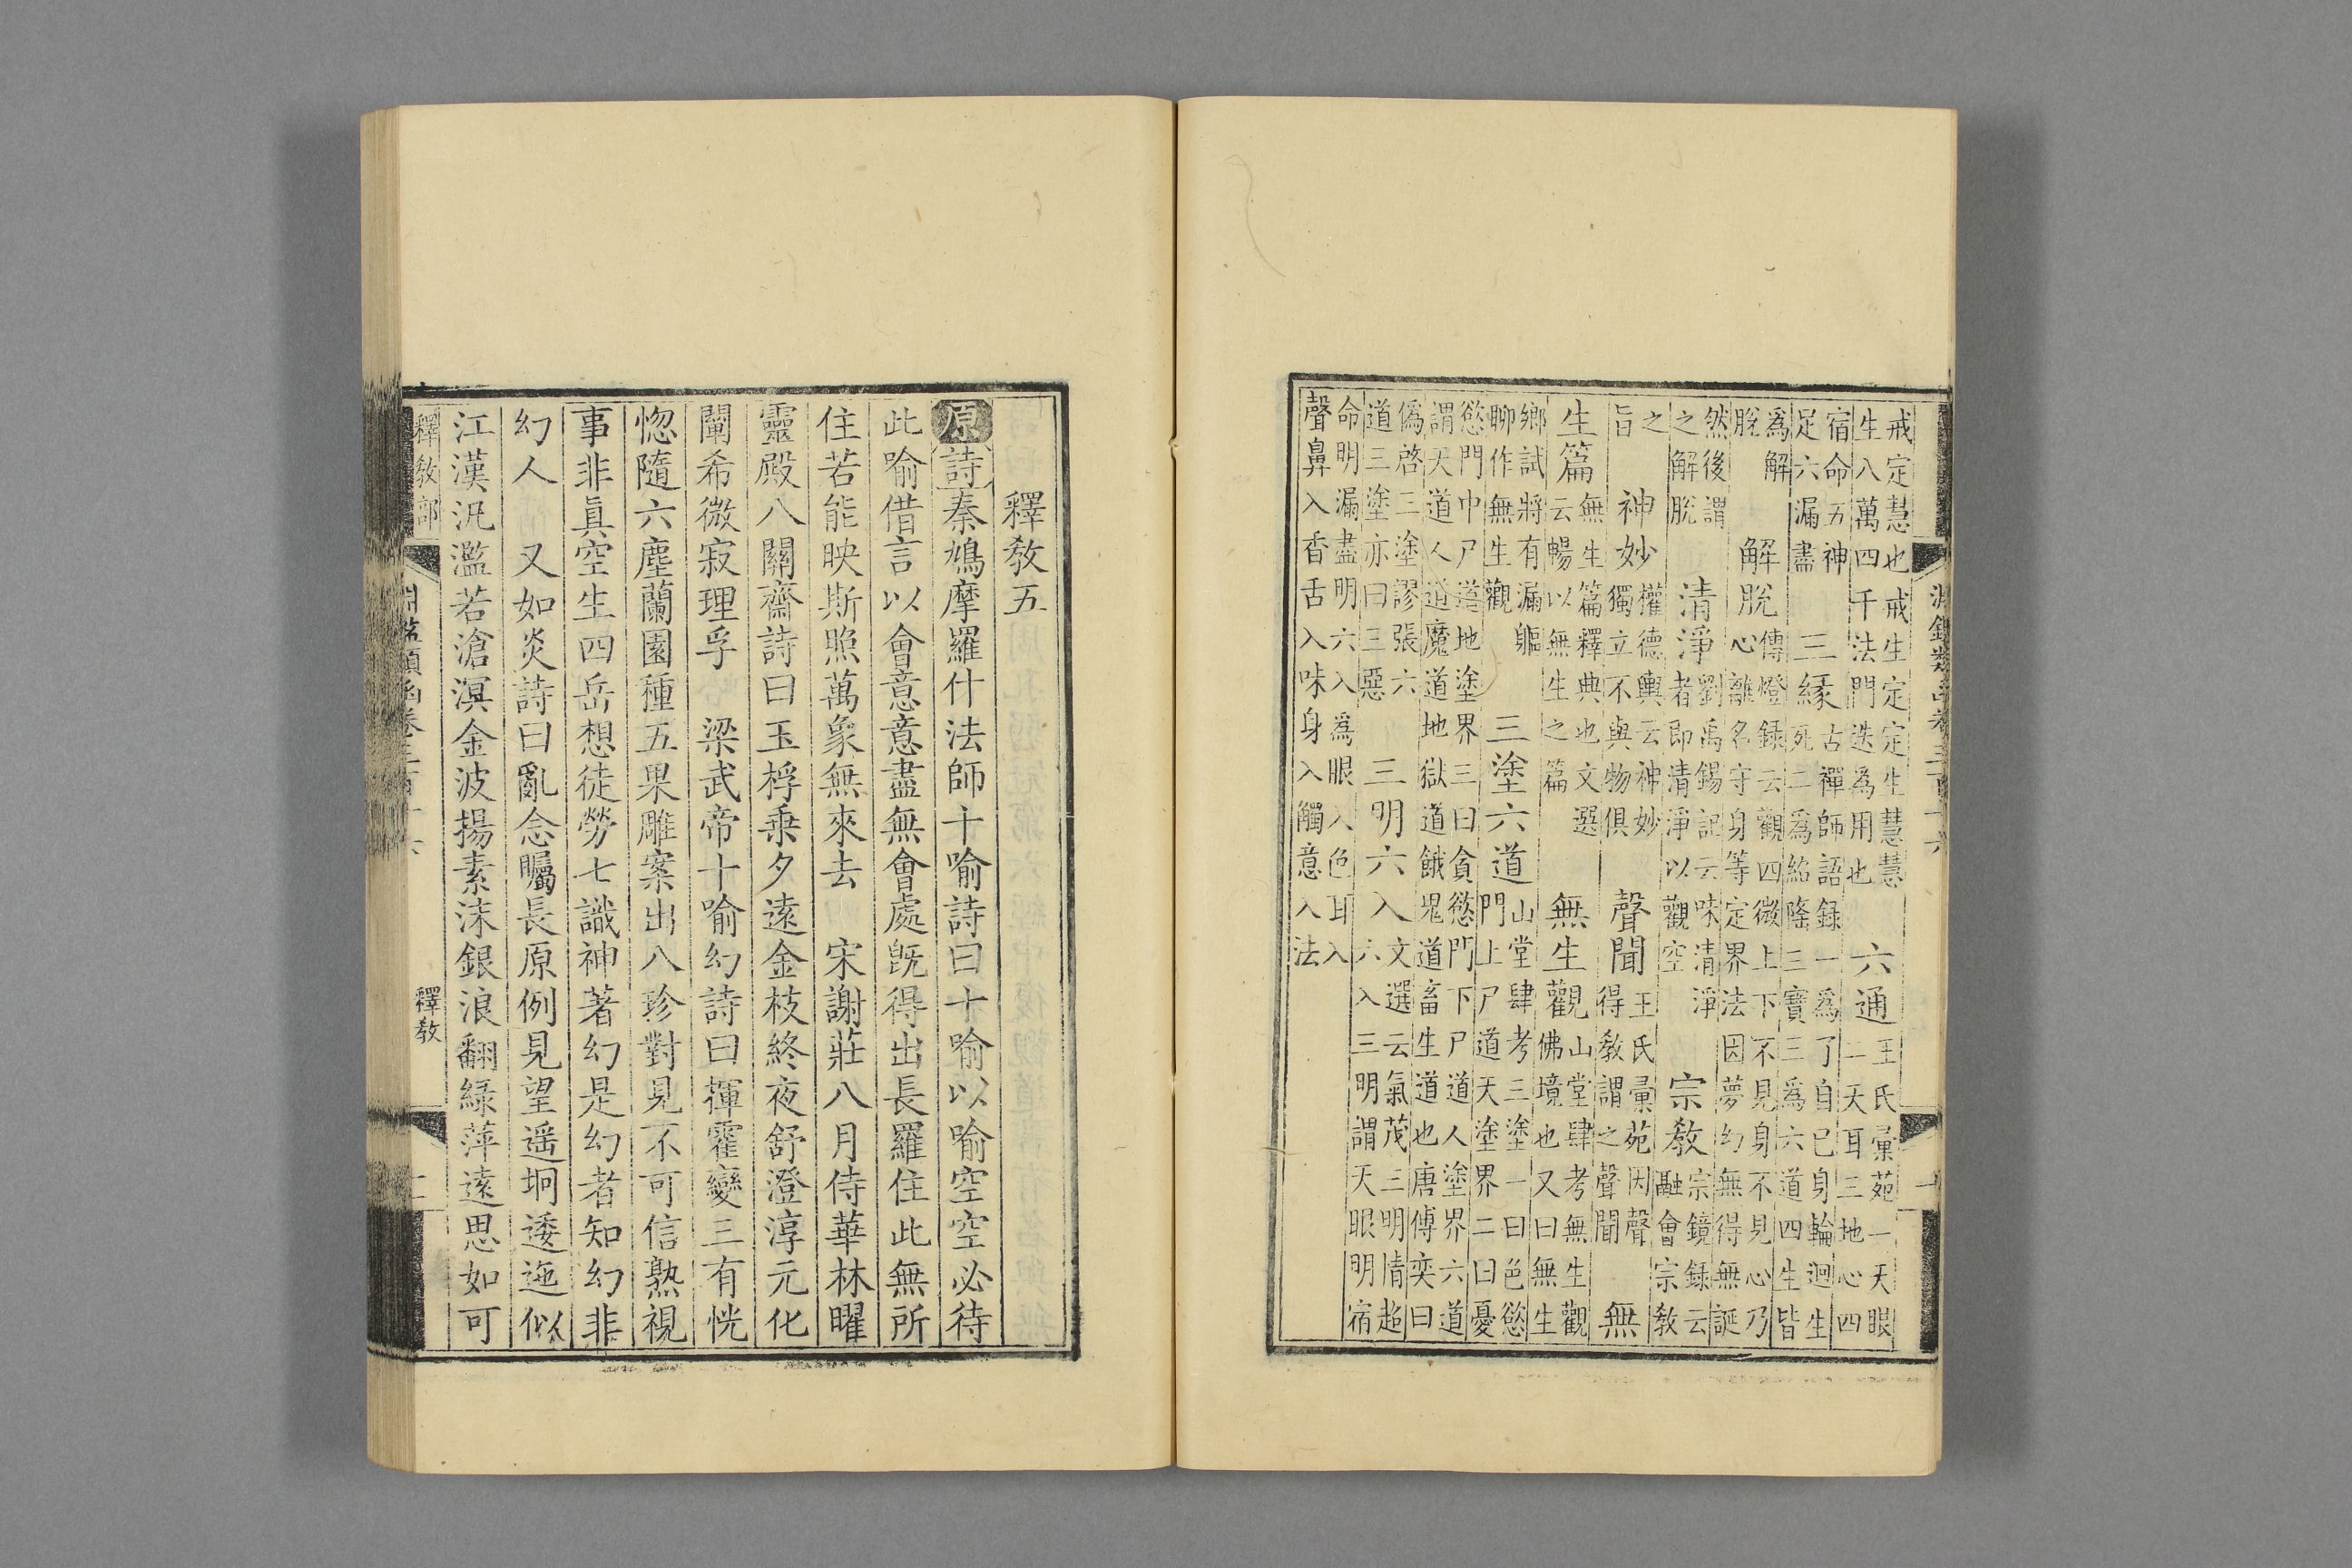 淵鑑類函卷三百一十六 一
戒定慧也戒生定定生慧慧
生八萬四千法門迭為用也
六通
王氏彙苑一天眼
二天耳三地心四
宿命五神
足六漏盡
三緣
古禪師語録一為了自已身輪迴生
死二為紹隆三寶三為六道四生皆
為解
脫
解脫
傳燈録云觀四微上下不見身不見心乃
心離名守身等定界法因夢幻無得無誕
然後謂
之解脫
清淨
劉禹錫記云味清淨
者即清淨以觀空
宗敎
宗鏡録云
融會宗敎
之
旨
神妙
權德輿云神妙
獨立不與物俱
聲聞
王氏彙苑因聲
得敎謂之聲聞
無
生篇
無生篇釋典也文選
云暢以無生之篇
無生觀
山堂肆考無生觀
佛境也又曰無生
鄉試將有漏軀
聊作無生觀
三塗六道
山堂肆考三塗一曰色慾
門上尸道天塗界二曰憂
慾門中尸道地塗界三曰貪慾門下尸道人塗界六道
謂天道人道魔道地獄道餓鬼道畜生道也唐傅奕曰
偽啓三塗謬張六
道三塗亦曰三惡
三明六入
文選云氣茂三明情超
六入三明謂天眼明宿
命明漏盡明六入為眼入色耳入
聲鼻入香舌入味身入觸意入法
釋敎五
原詩秦鳩摩羅什法師十喻詩曰十喻以喻空空必待
此喻借言以會意意盡無會處旣得出長羅住此無所
住若能映斯照萬象無來去 宋謝莊八月侍華林曜
靈殿八關齋詩曰玉桴乗夕遠金枝終夜舒澄淳元化
闡希微寂理孚 梁武帝十喻幻詩曰揮霍變三有恍
惚隨六塵蘭園種五果雕案出八珍對見不可信熟視
事非眞空生四岳想徒勞七識神著幻是幻者知幻非
幻人 又如炎詩曰亂念矚長原例見望遥坰逶迤似
江漢汎濫若滄溟金波揚素沫銀浪翻緑萍遠思如可
釋敎部 淵鑑類函卷三百十六 釋敎 二